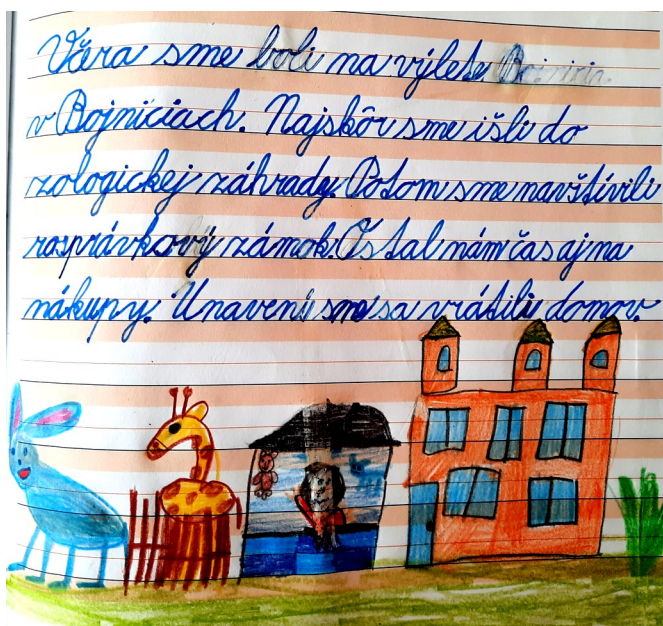 Včera sme boli na výlete
v Bojniciach. Najskôr sme išli do
zologickej záhrady. Potom sme navštívili
rosprávkový zámok. Ostal nám čas aj na
nákupy. Unavení sme sa vrátili domov.